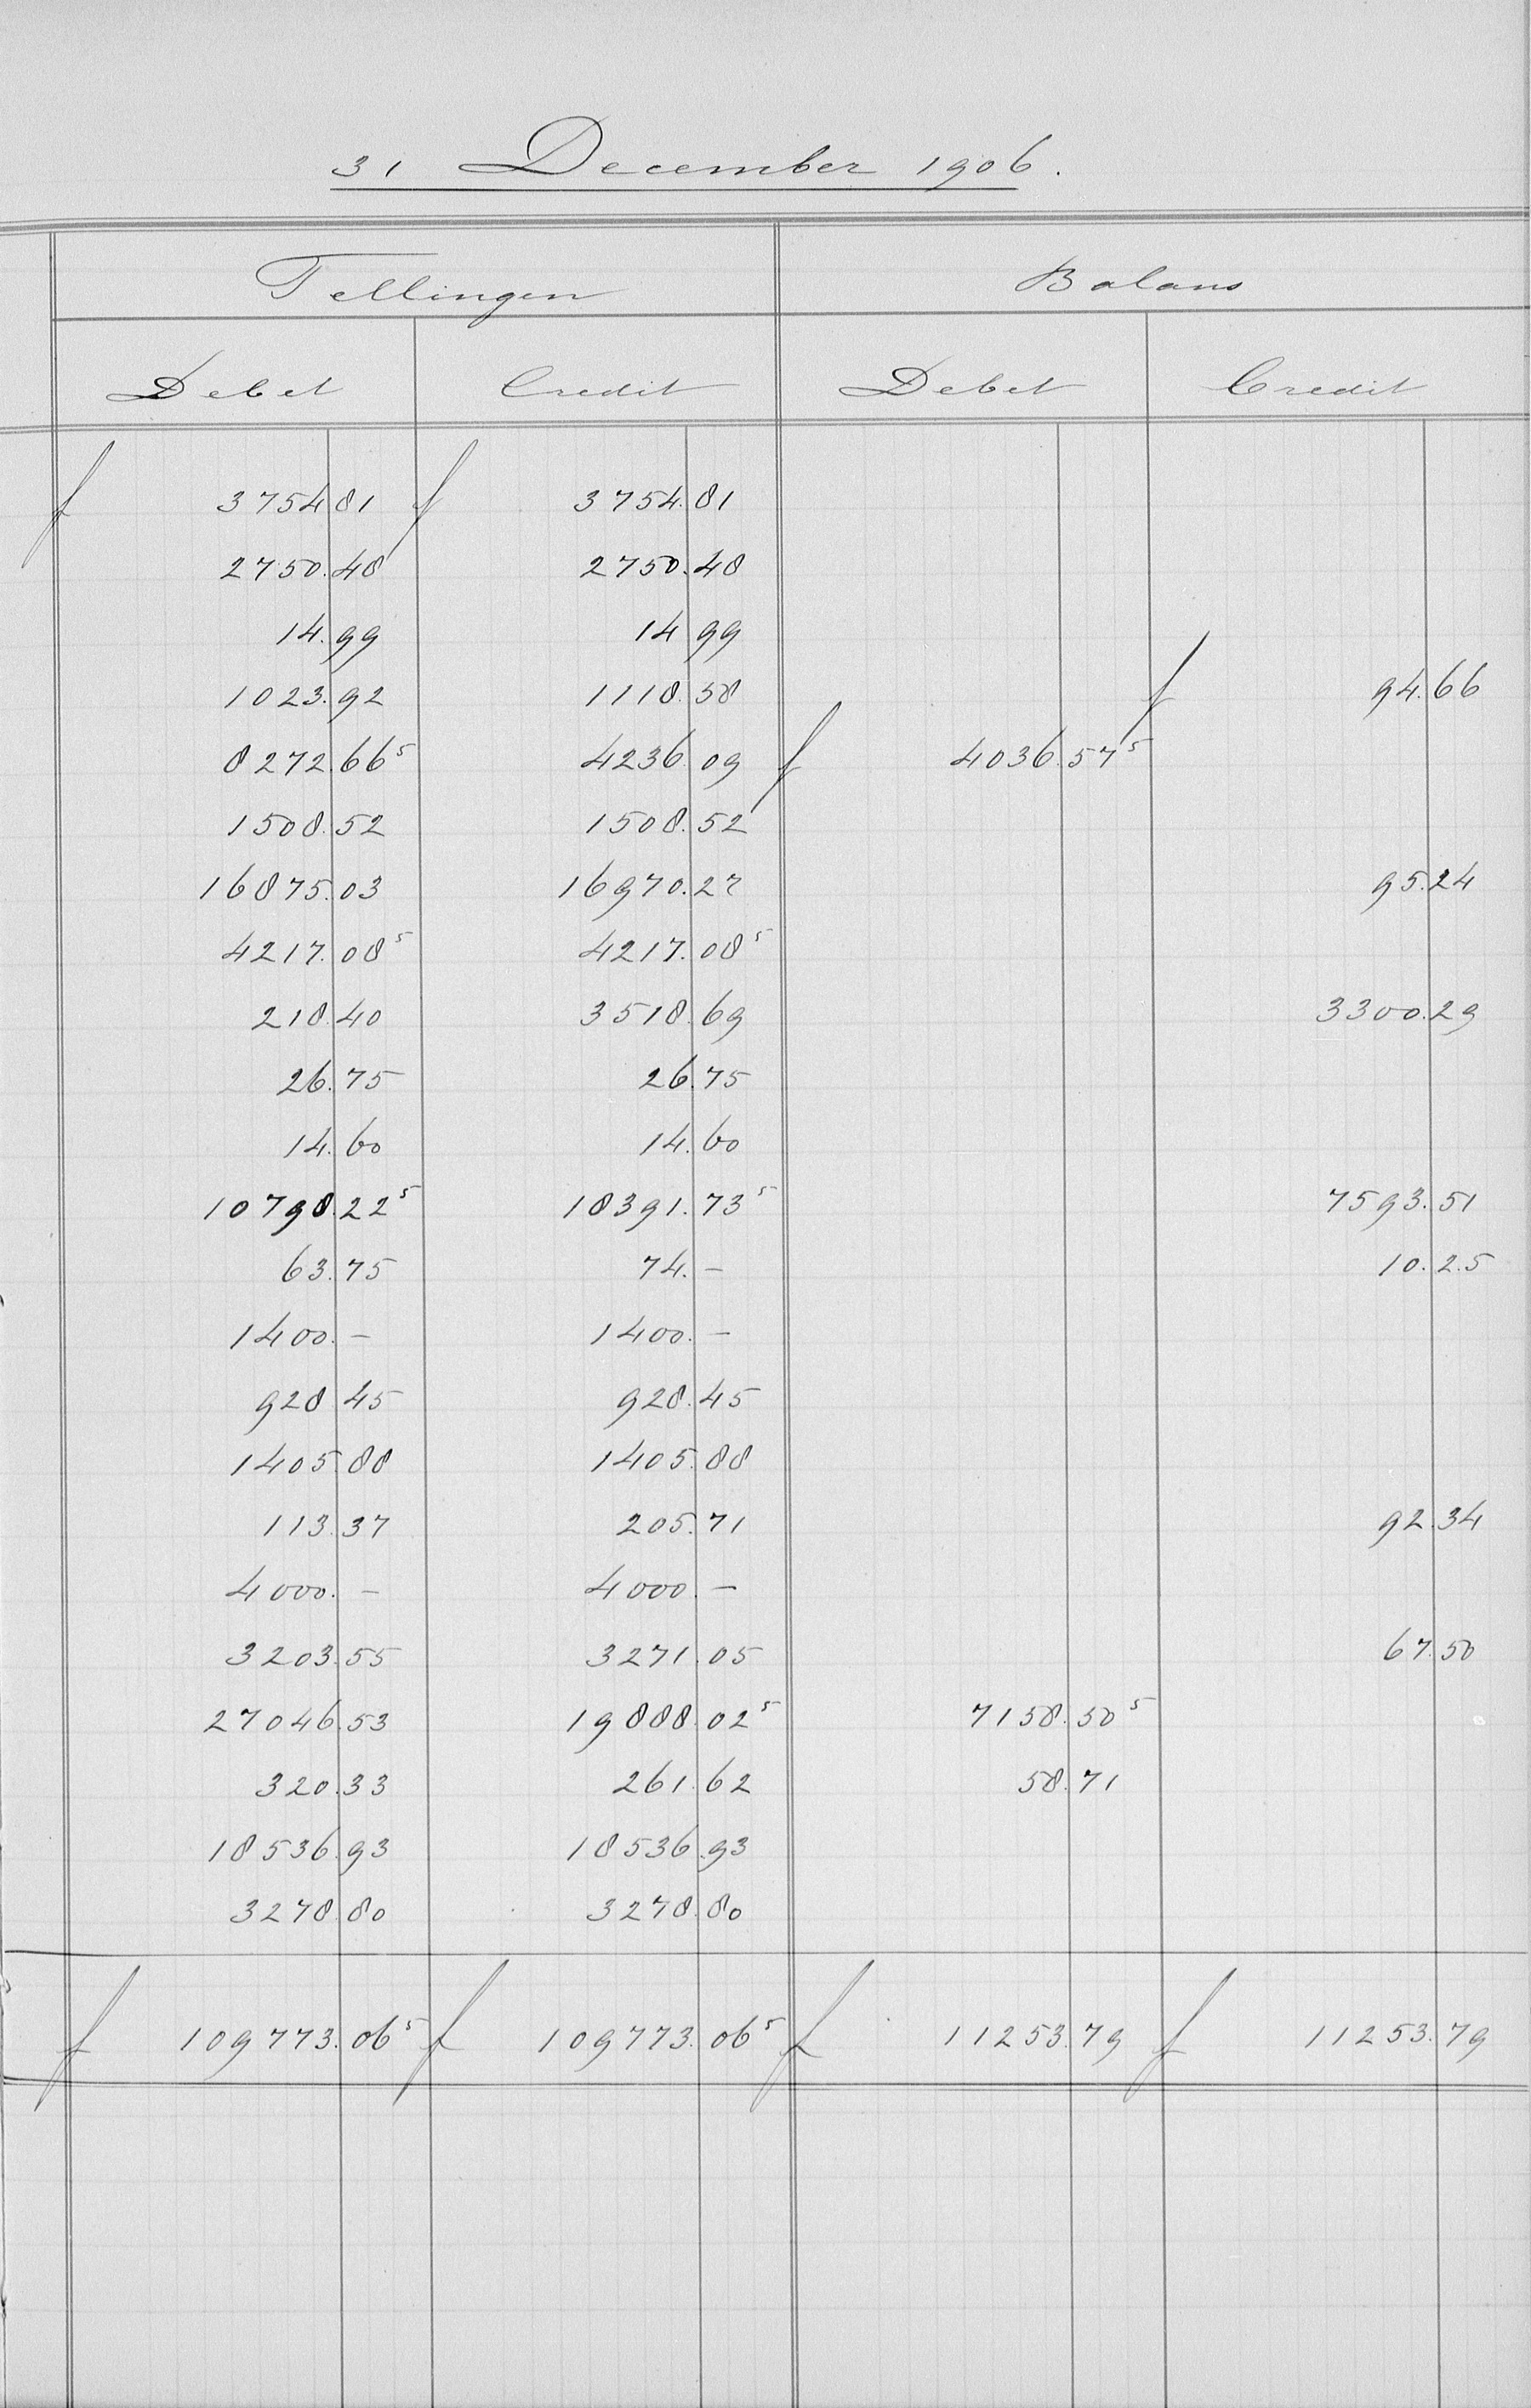 31 December 1906.
Tellingen Balans
Debet Credit Debet Credit
f 3754 81 f 3754.81
2750.48 2750.48
14.99 14 99
1023.92 1118.58 f 94.66
8272.66⁵ 4236.09 f 4036.57⁵
1508.52 1508.52
16875.03 16970.27 95.24
4217.08⁵ 4217.08⁵
218.40 3518.69 3300.29
26.75 26.75
14.60 14.60
10798.22⁵ 18391.73⁵ 7593.51
63.75 74.- 10.25
1400.- 1400.-
928 45 928.45
1405.88 1405.88
113.37 205.71 92.34
4000.- 4000.-
3203.55 3271.05 67.50
27046.53 19888.02⁵ 7158.50⁵
320.33 261.62 58.71
18536.93 18536.93
3278.80 3278.80
f 109773.06⁵ f 109773.06⁵ f 11253.79 f 11253.79